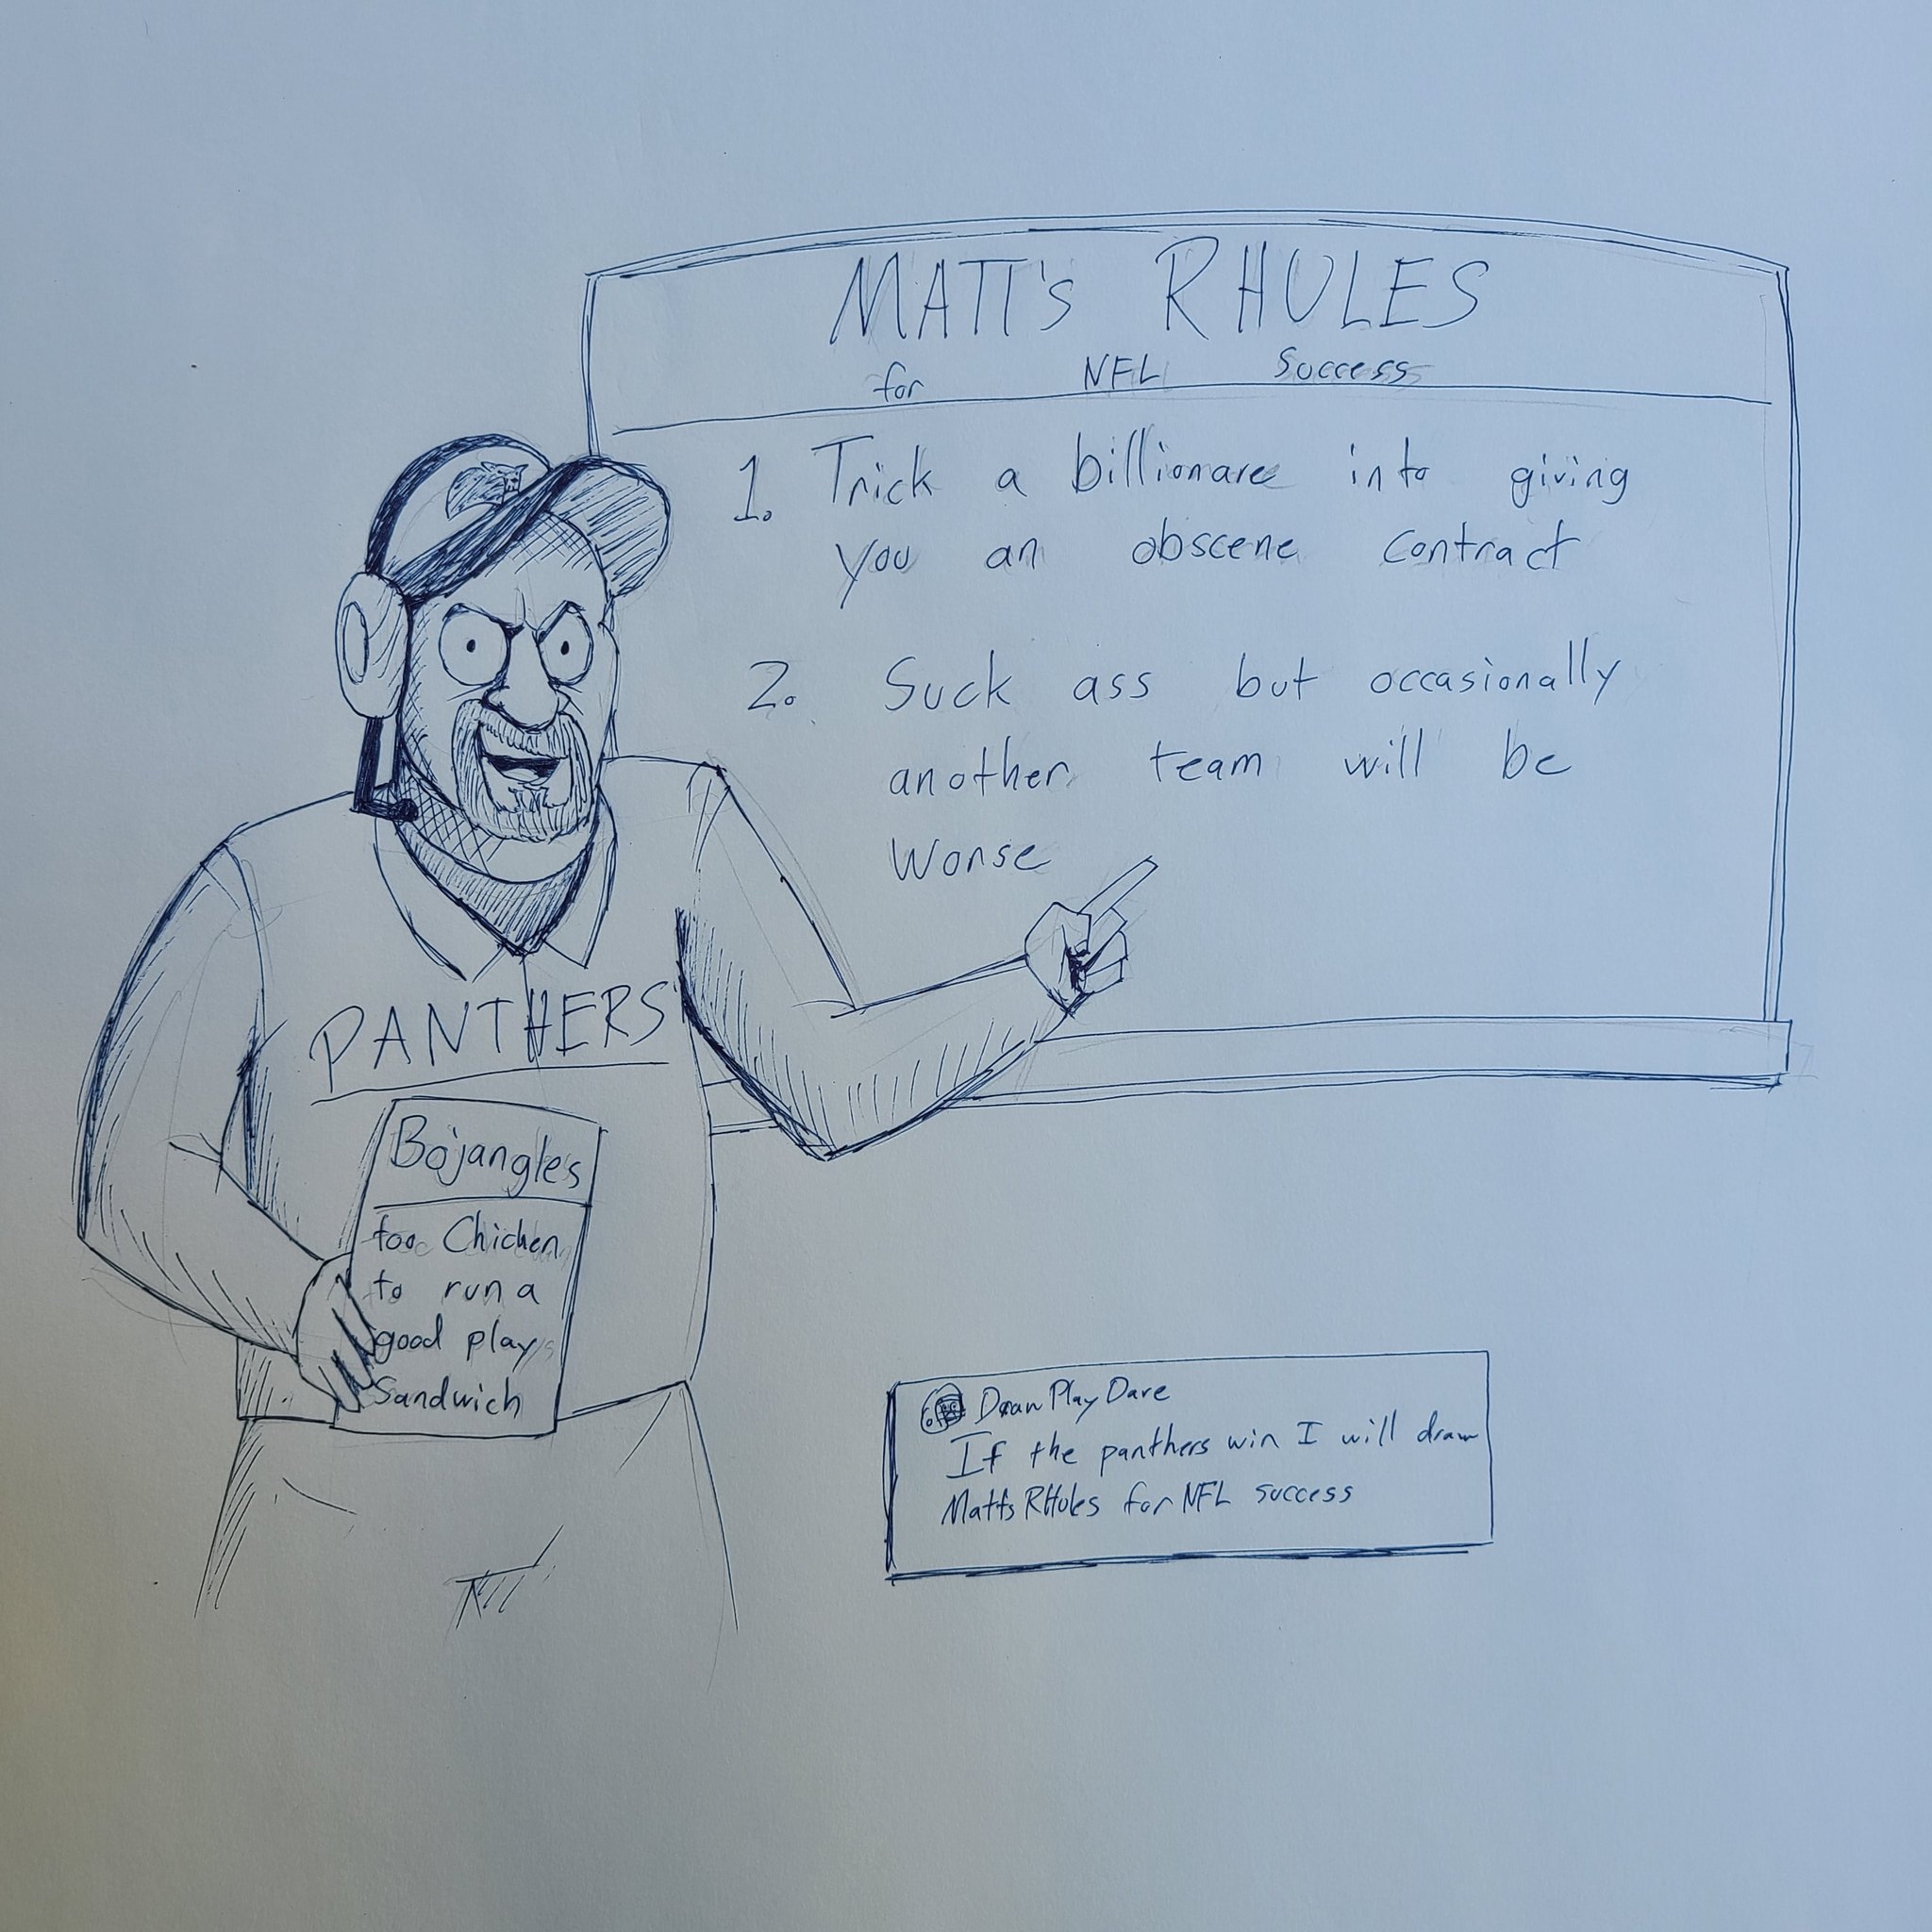 MATT'S RHULES
for NFL Success
1. Trick a billionare into giving
you an obscene contract
2. Suck ass but occasionally
another team will be
worse
PANTHERS
Bojangles
too Chicken
to run a
good play
Sandwich
Draw Play Dave
If the panthers win I will draw
Matt's RHules for NFL success